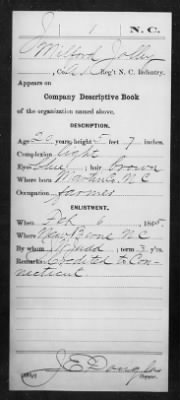 J 1 N. C.
Milford Jolly
, Co. Reg't N. C. Infantry.
Appears on
Company Descriptive Book
of the organization named above.
DESCRIPTION.
Age 20 years; height 5 feet 7 inches.
Complexion Light
Eyes Blue; hair Brown
Where born N.C
Occupation farmer
ENLISTMENT.
When Feb 6, 186
Where New Berne N.C
By whom; term 3 y'rs.
Remarks: Credited to Con-
necticut.
J. E. Douglas